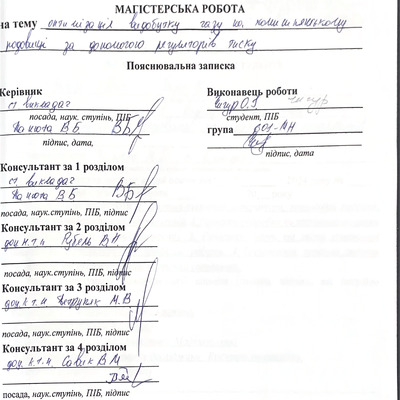 МАГІСТЕРСЬКА РОБОТА
на тему оптимізація видобутку газу на
родовищі за допомогою регуляторів тиску
Пояснювальна записка
Керівник
ст викладач
посада, наук. ступінь, ПІБ
В Б
підпис, дата,
Виконавець роботи
студент, ПІБ
група
підпис, дата
Консультант за 1 розділом
ст. викладач
В Б
посада, наук.ступінь, ПІБ, підпис
Консультант за 2 розділом
доц к.т.н. Рубель В П
посада, наук.ступінь, ПІБ, підпис
Консультант за 3 розділом
доц. к.т.н. Петруняк М. В
посада, наук.ступінь, ПІБ, підпис
Консультант за 4 розділом
доц. к.т.н. Савик В М
посада, наук.ступінь, ПІБ, підпис